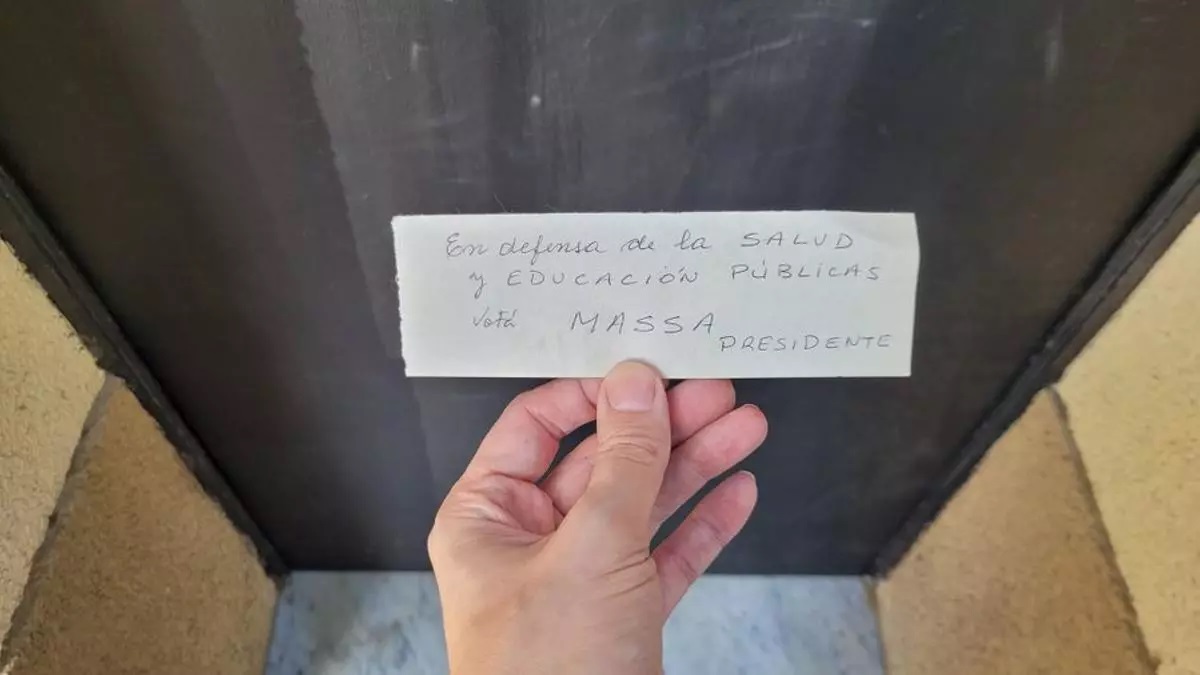 En defensa de la SALUD
y EDUCACIÓN PÚBLICAS
Votá MASSA
PRESIDENTE